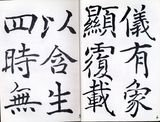 儀有象
顯覆載
以含生
四時無